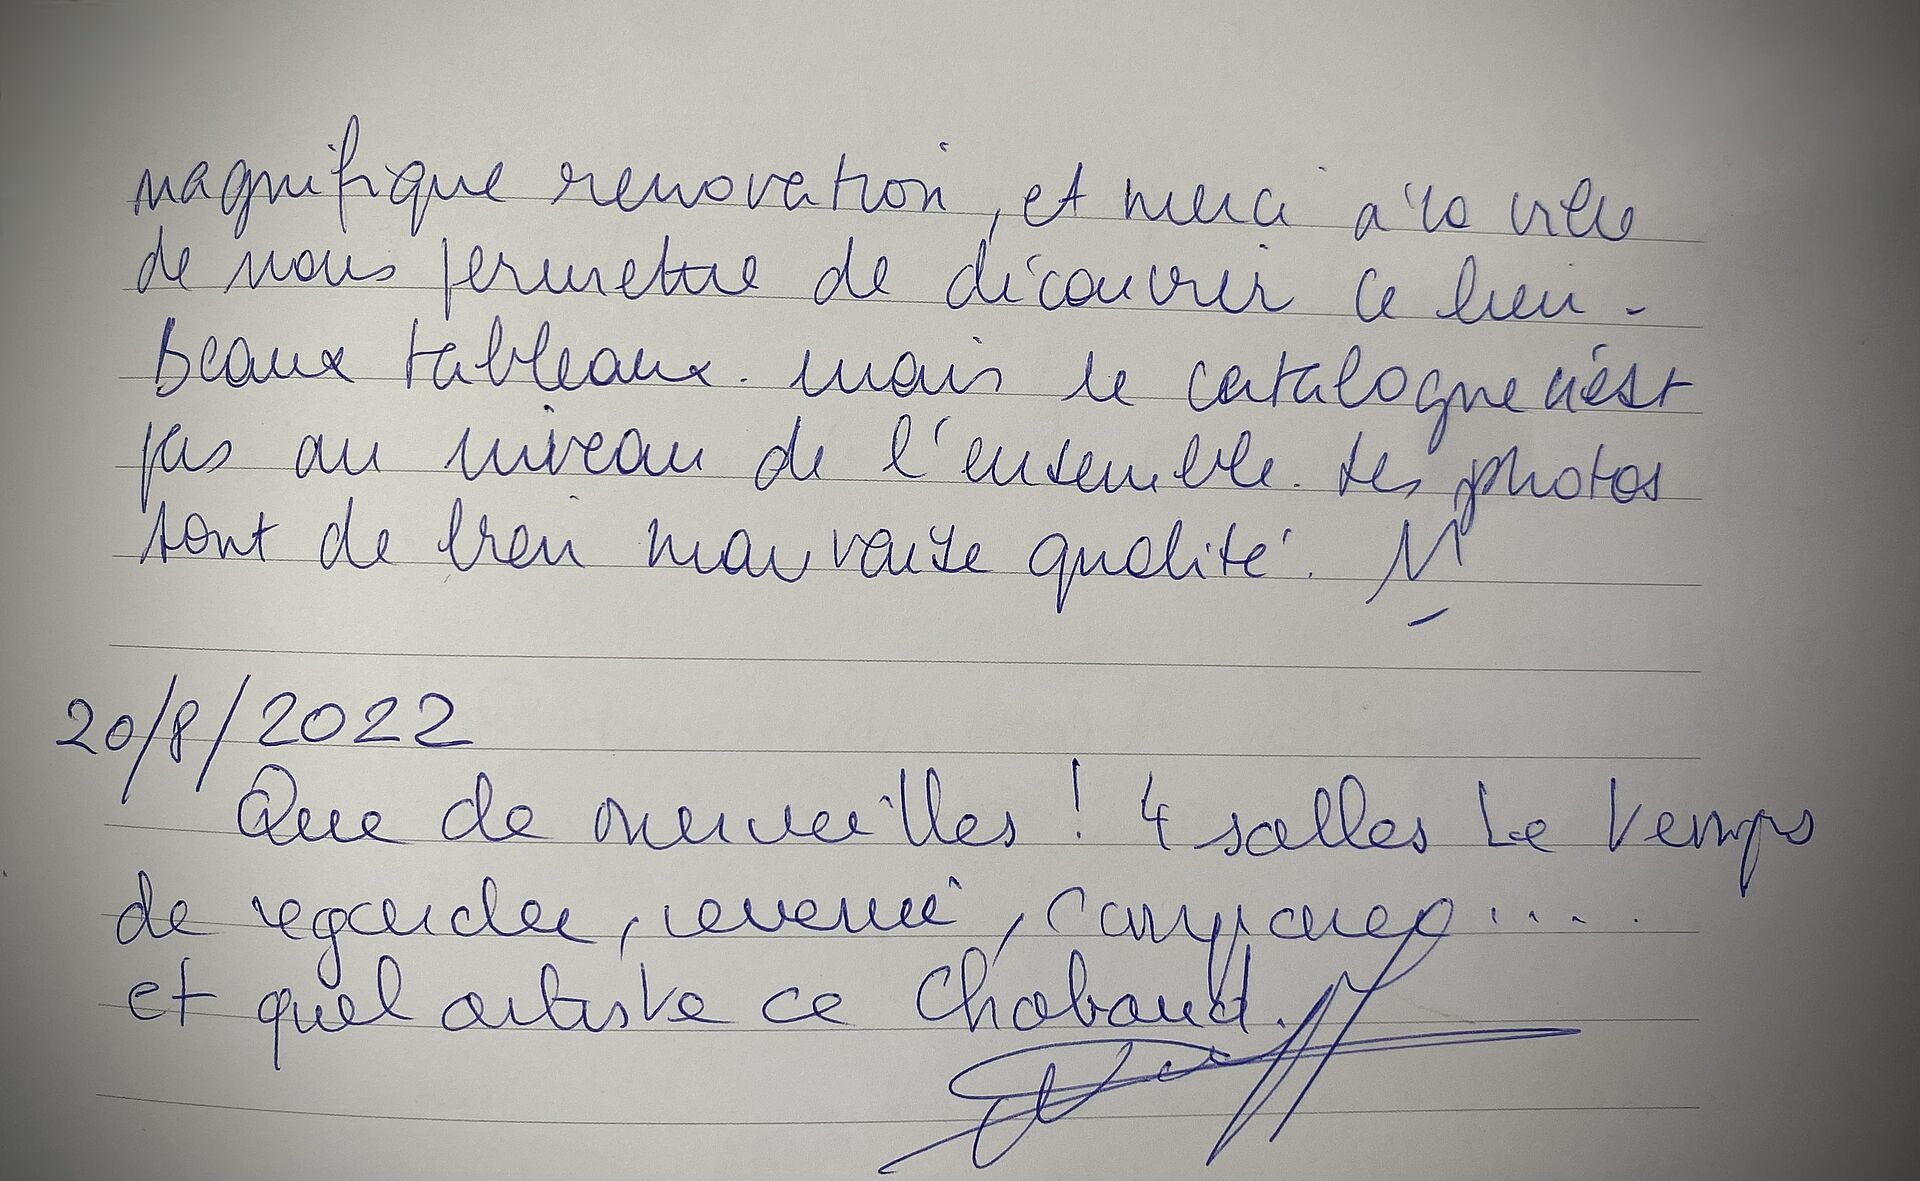 magnifique renovation, et merci à la ville
de nous permettre de découvrir ce lieu -
Beaux tableaux. mais le catalogue n'est
pas au niveau de l'ensemble. Les photos
sont de bien mauvaise qualité. M
20/8/2022
Que de merveilles ! 4 salles Le temps
de regarder, revenir, comparer ....
et quel artiste ce Chabaud.